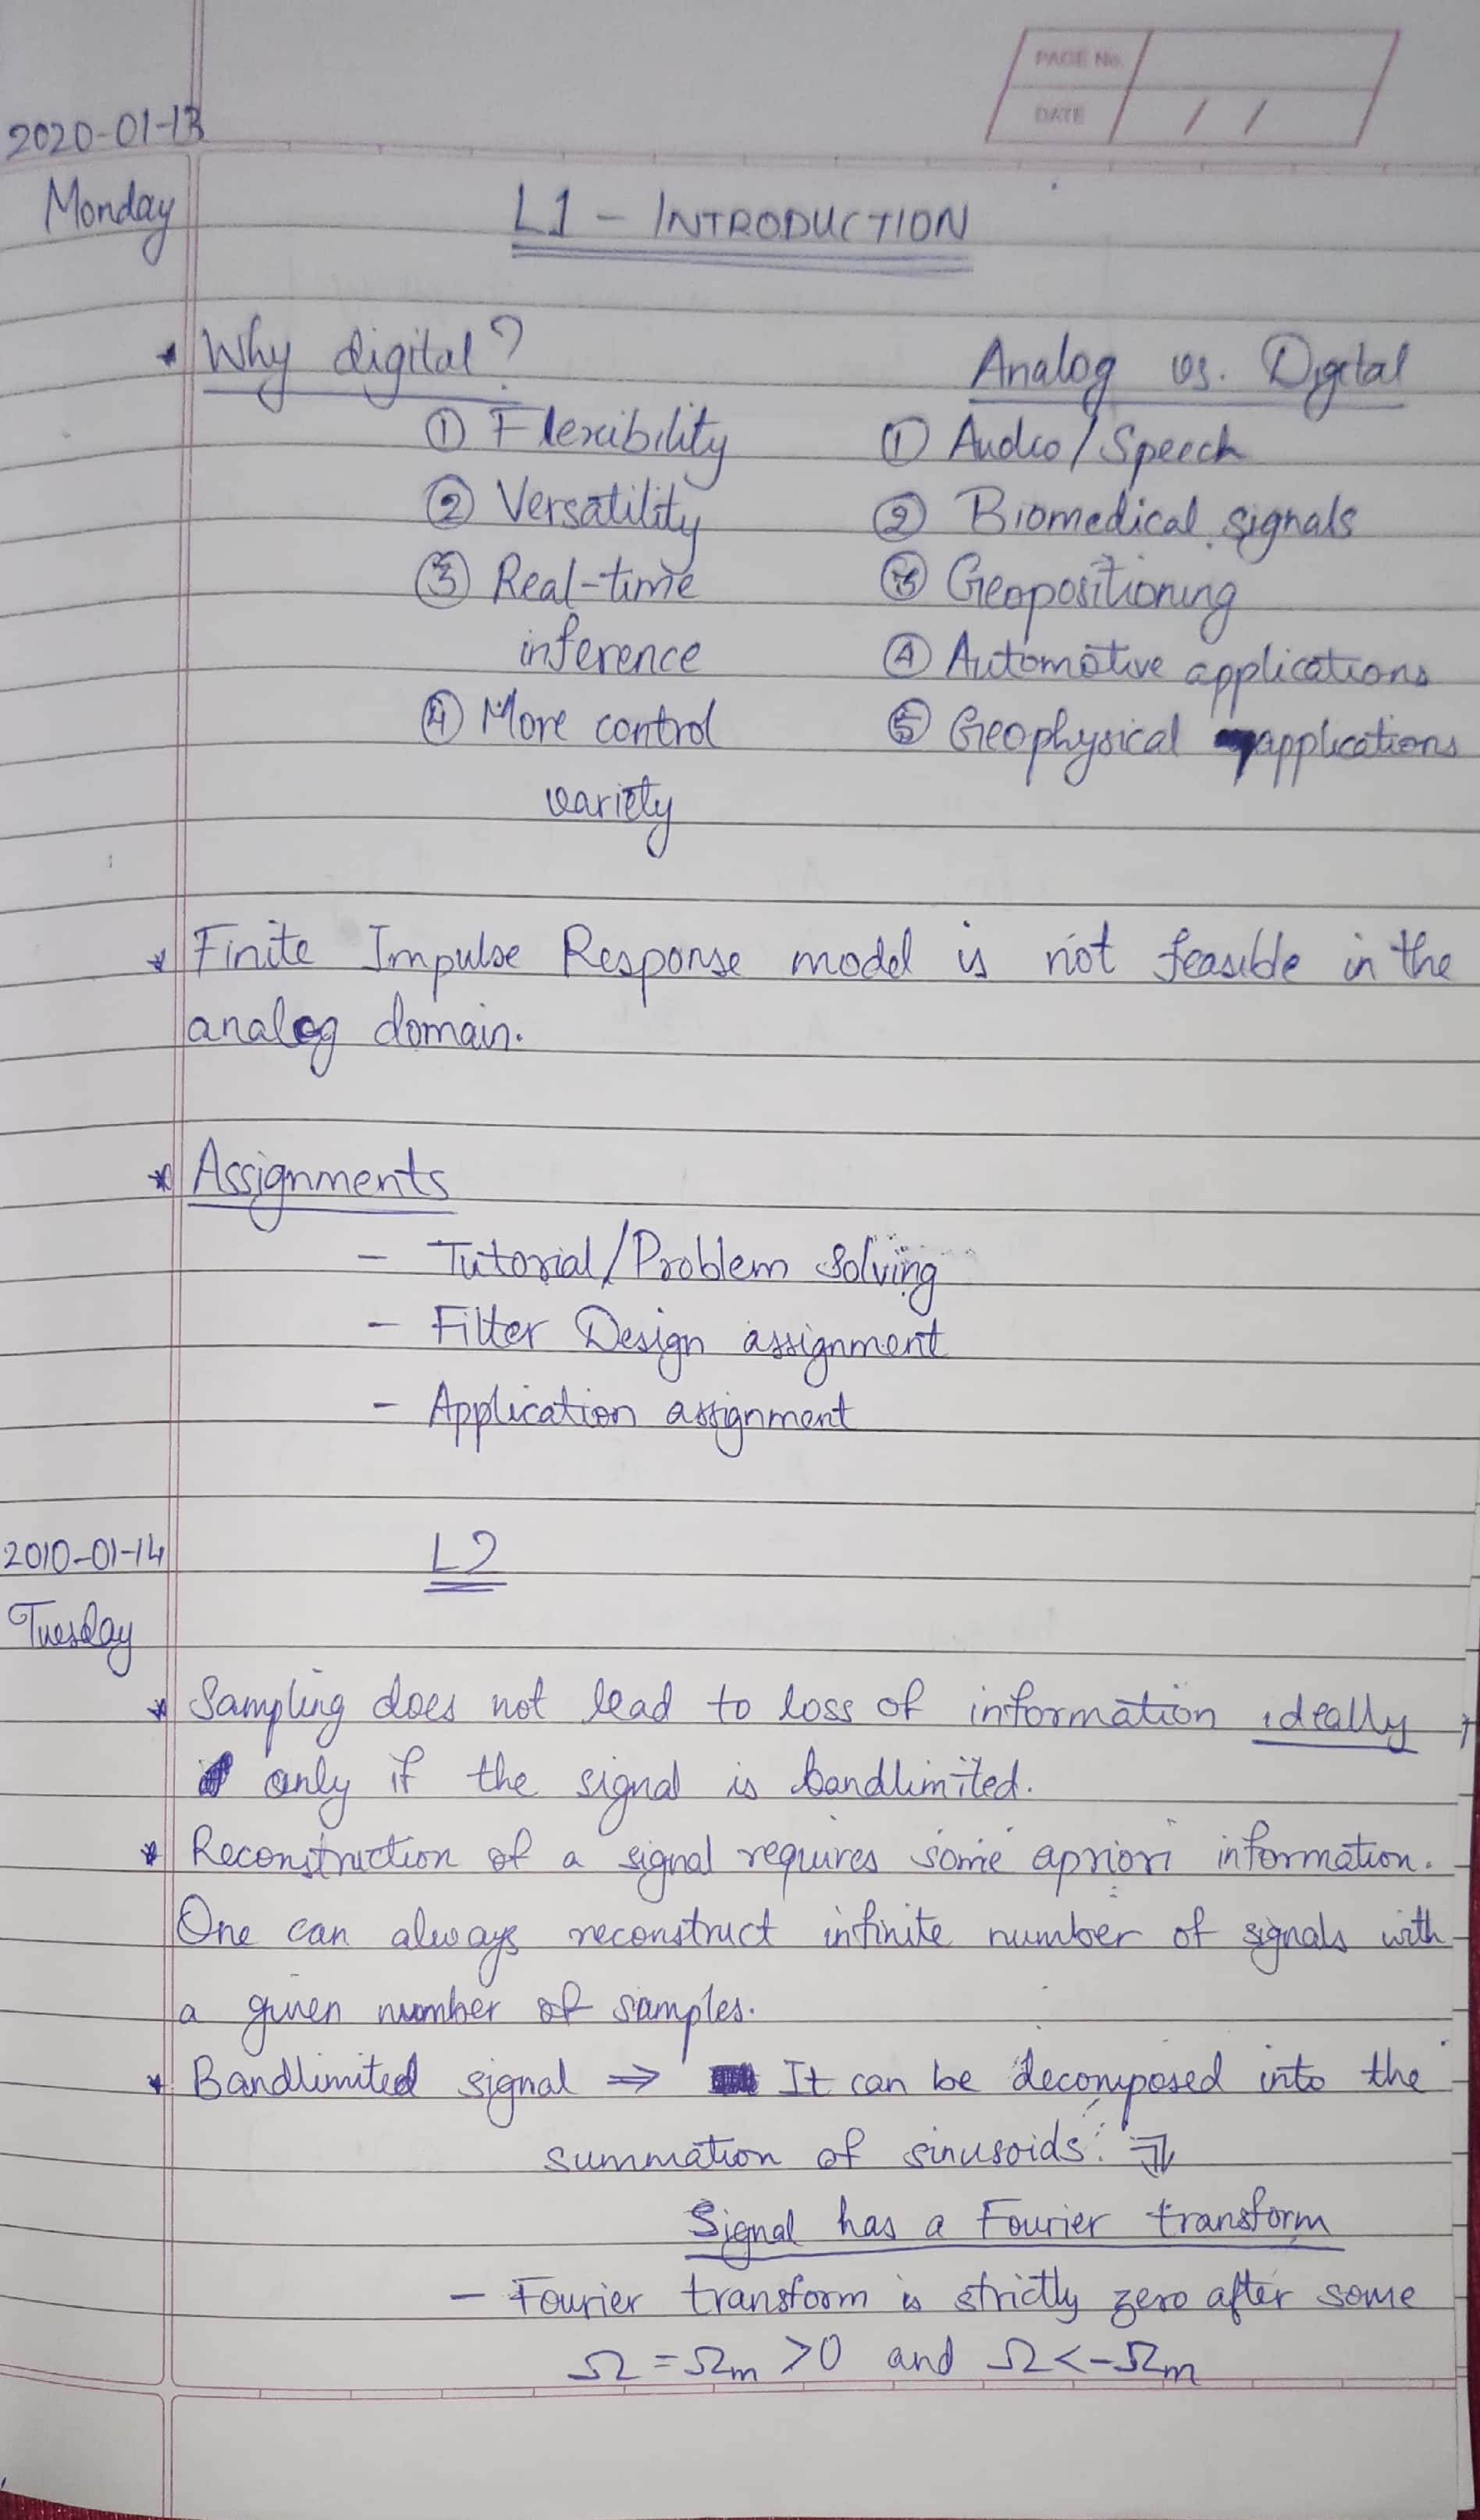 PAGE No.
DATE / /
2020-01-13
Monday
L1 - INTRODUCTION
* Why digital?
① Flexibility
② Versatility
③ Real-time
inference
④ More control
variety
Analog vs. Digital
① Audio/Speech
② Biomedical signals
③ Geopositioning
④ Automotive applications
⑤ Geophysical applications
* Finite Impulse Response model is not feasible in the
analog domain.
* Assignments
- Tutorial/Problem Solving
- Filter Design assignment
- Application assignment
2010-01-14
Tuesday
L2
* Sampling does not lead to loss of information ideally,
only if the signal is bandlimited.
* Reconstruction of a signal requires some apriori information.
One can always reconstruct infinite number of signals with
a given number of samples.
* Bandlimited signal ⇒ It can be decomposed into the
summation of sinusoids. ⇓
Signal has a Fourier transform
- Fourier transform is strictly zero after some
Ω = Ωm >0 and Ω<-Ωm